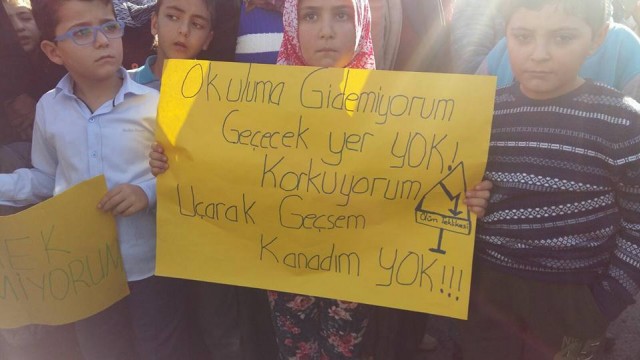 Okuluma Gidemiyorum
Geçecek yer YOK!
Korkuyorum
Uçarak Geçsem
Kanadım YOK!!!
Ölüm Tehlikesi